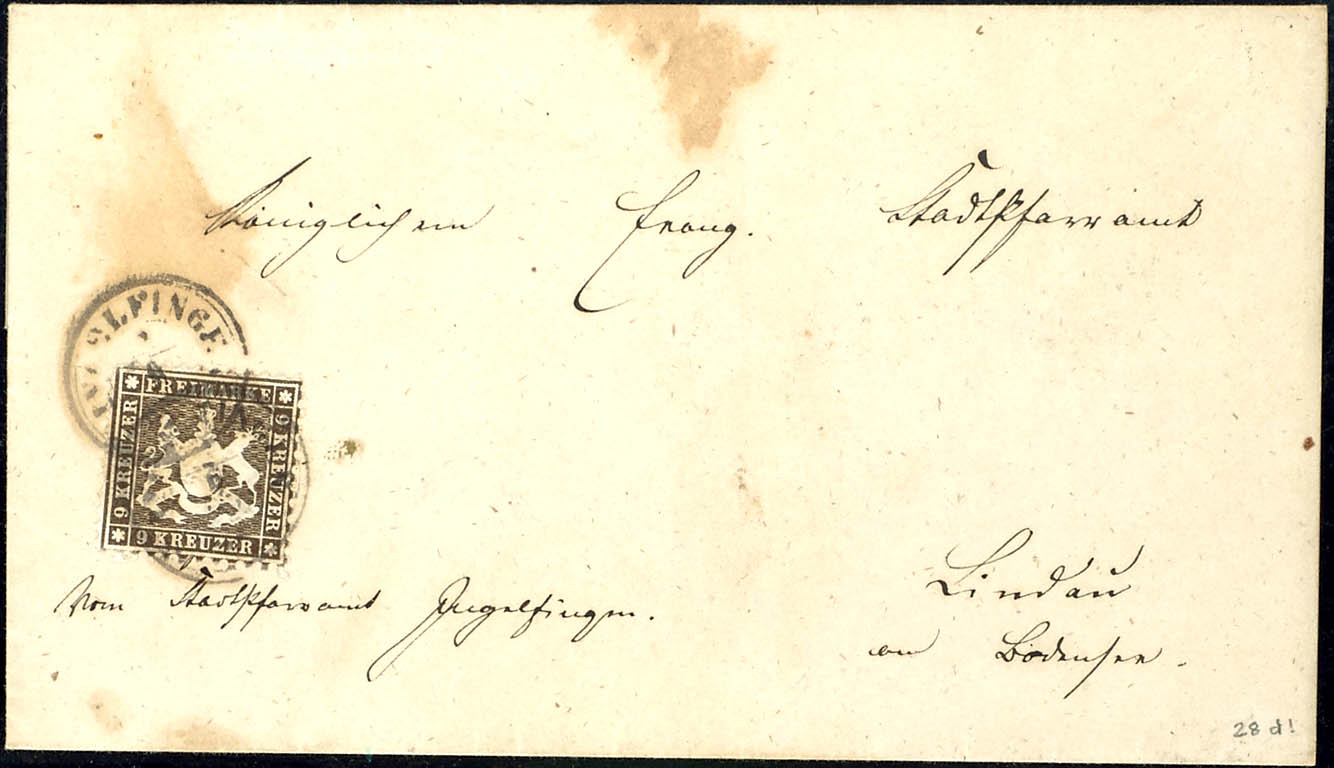 Königlichem Evang. Stadtpfarramt
FREIMARKE
9 KREUZER
9 KREUZER
9 KREUZER
Vom Stadtpfarramt Ingelfingen.
Lindau
am Bodensee.
28 d!